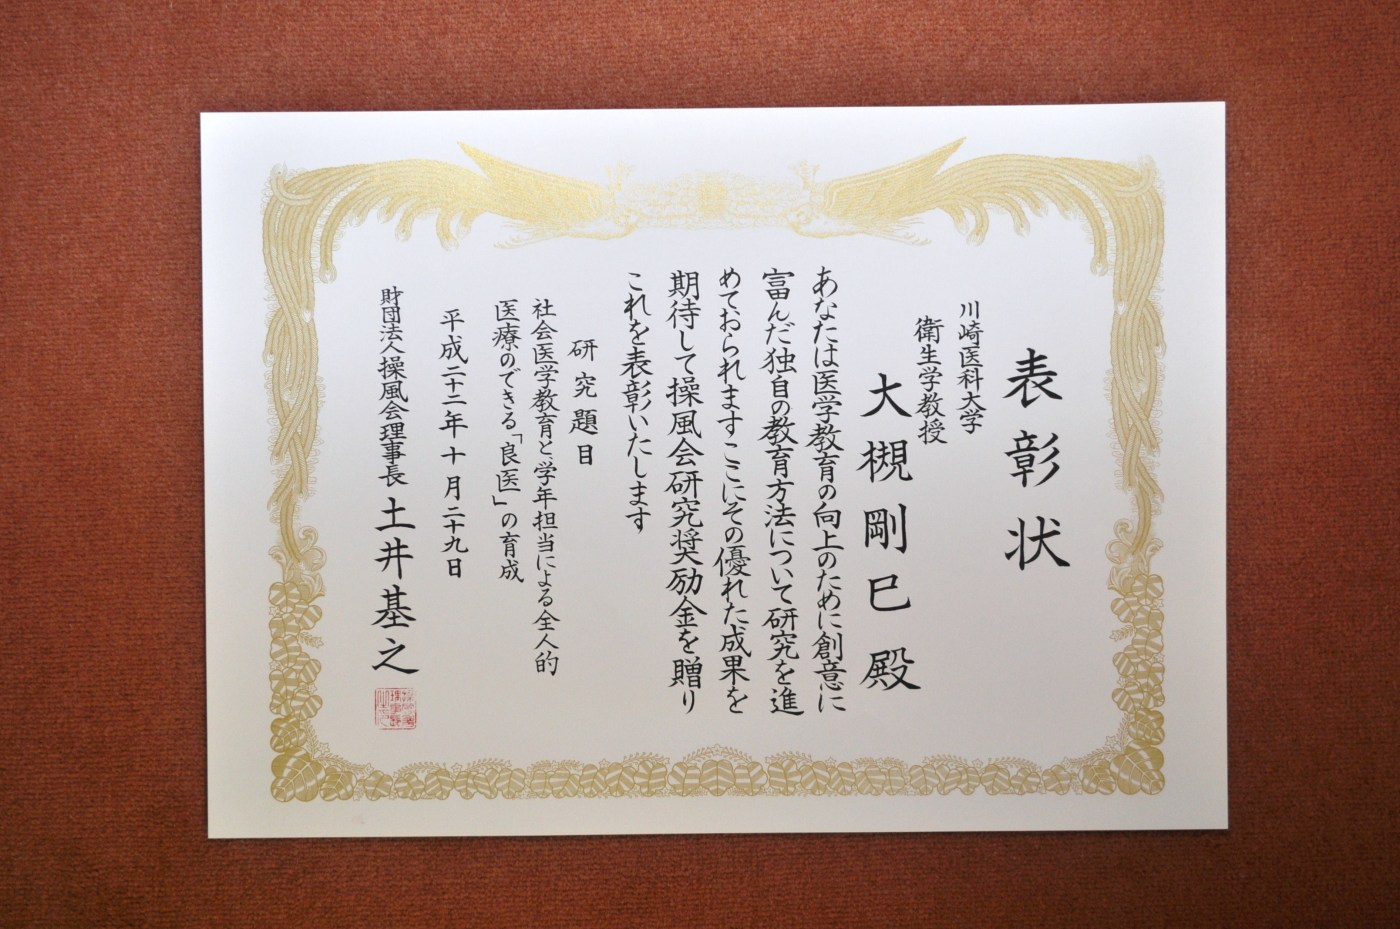 表彰状
川崎医科大学
衛生学教授
大槻剛巳殿
あなたは医学教育の向上のために創意に
富んだ独自の教育方法について研究を進
めておられますここにその優れた成果を
期待して操風会研究奨励金を贈り
これを表彰いたします
研究題目
社会医学教育と、学年担当による全人的
医療のできる「良医」の育成
平成二十二年十月二十九日
財団法人操風会理事長土井基之